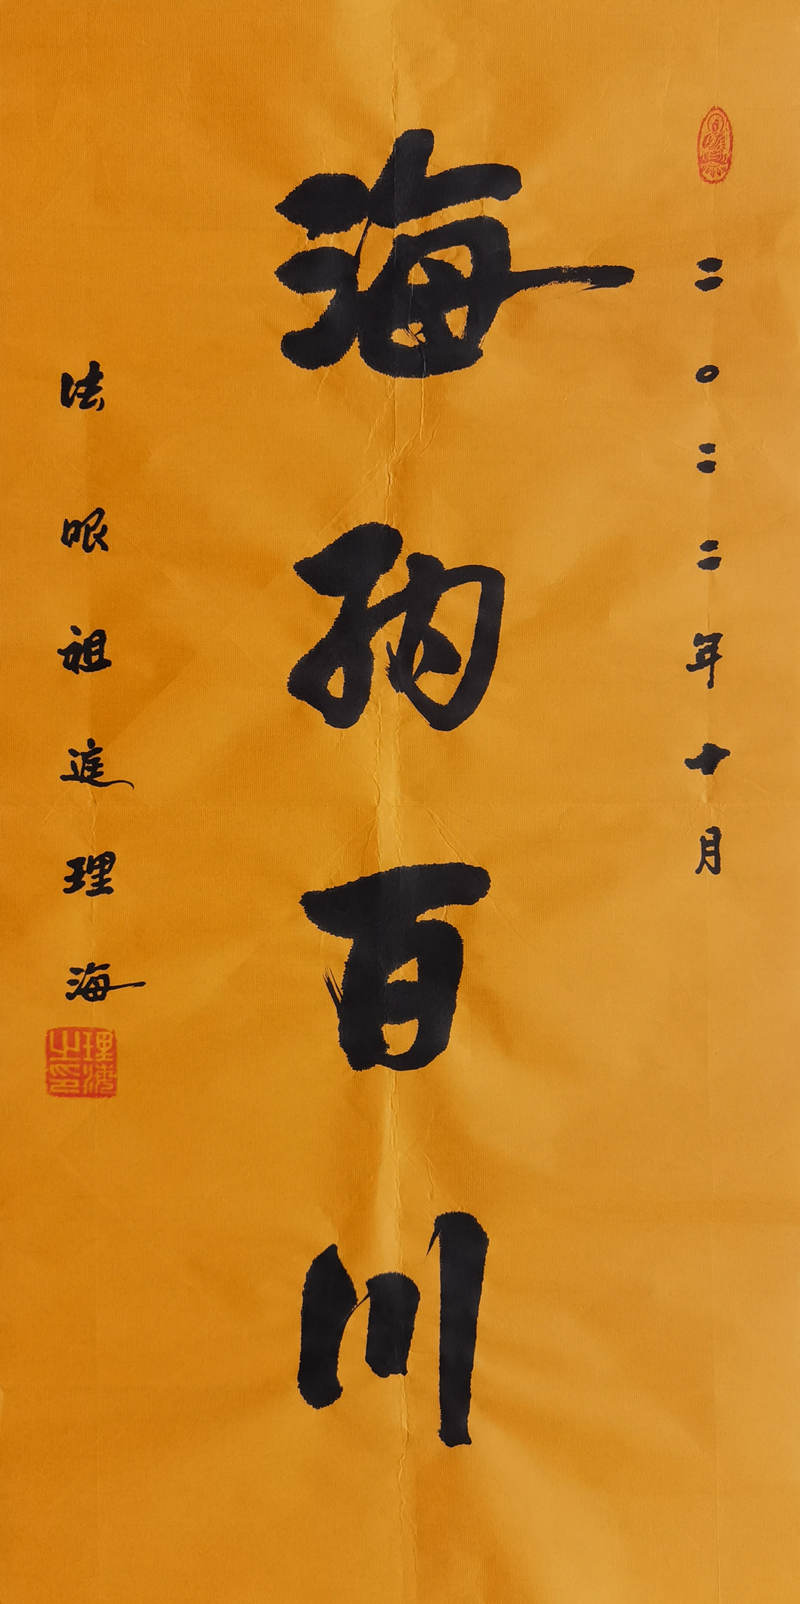 二〇二二年十月
海纳百川
法眼祖庭理海
理海之印